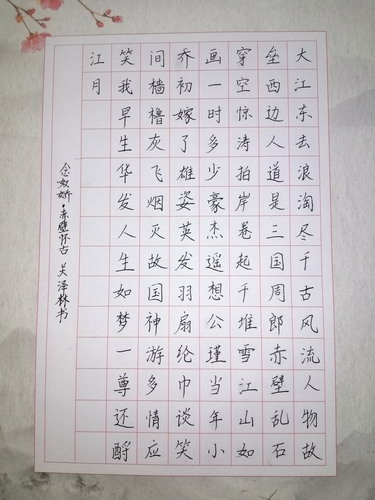 大江东去浪淘尽千古风流人物故
垒西边人道是三国周郎赤壁乱石
穿空惊涛拍岸卷起千堆雪江山如
画一时多少豪杰遥想公瑾当年小
乔初嫁了雄姿英发羽扇纶巾谈笑
间樯橹灰飞烟灭故国神游多情应
笑我早生华发人生如梦一尊还酹
江月
念奴娇·赤壁怀古 泽林书